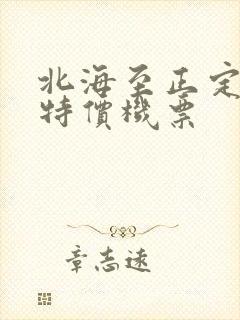 北海至正定
特價機票
章志遠